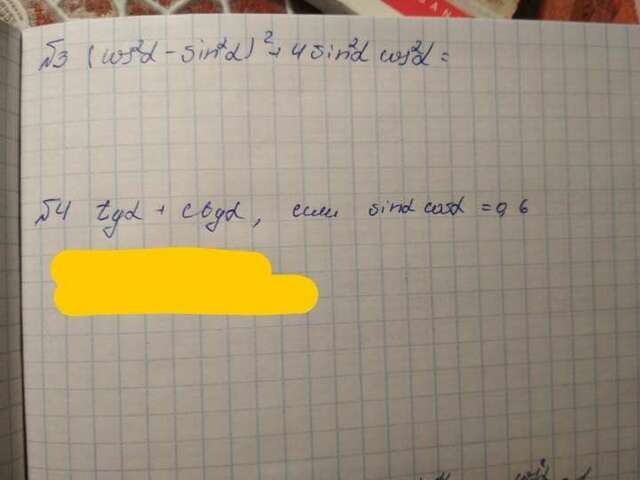 №3 (cos²α - sin²α)² + 4 sin²α cos²α =
№4 tgα + ctgα, если sinα cosα = 0,6